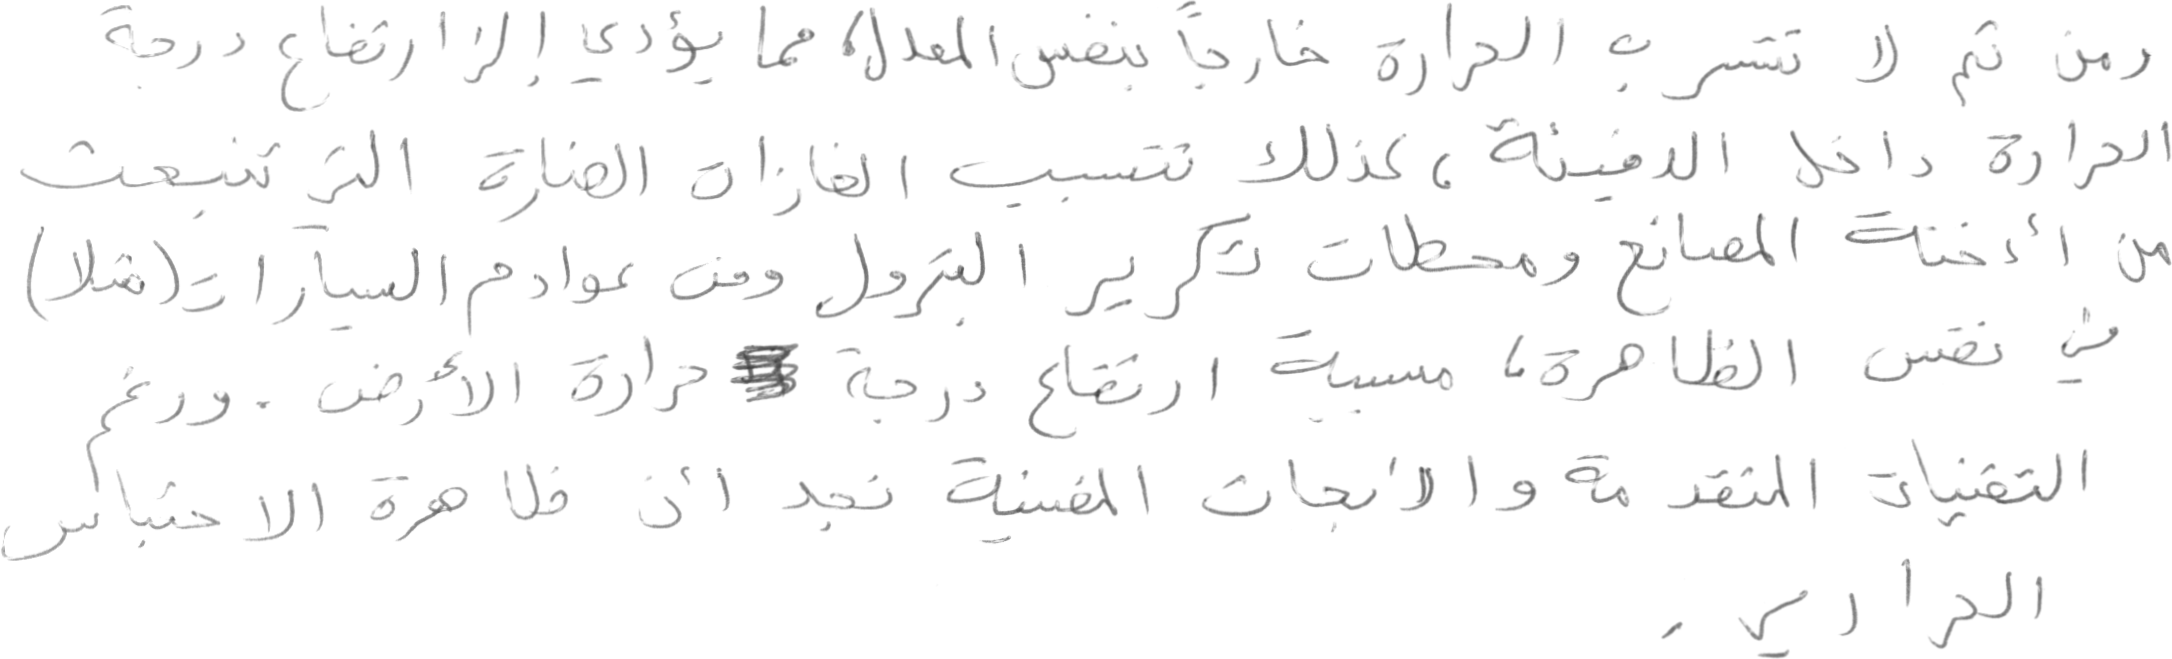 ومن ثم لا تتسرب الحرارة خارجاً بنفس المعدل، مما يؤدي إلى ارتفاع درجة
الحرارة داخل الدفيئة، كذلك تتسبب الغازات الضارة التي تنبعث
من أدخنة المصانع ومحطات تكرير البترول ومن عوادم السيارات (مثلا)
في نفس الظاهرة، مسببة ارتفاع درجة حرارة الأرض. ورغم
التقنيات المتقدمة والأبحاث المضنية نجد أن ظاهرة الاحتباس
الحراري.